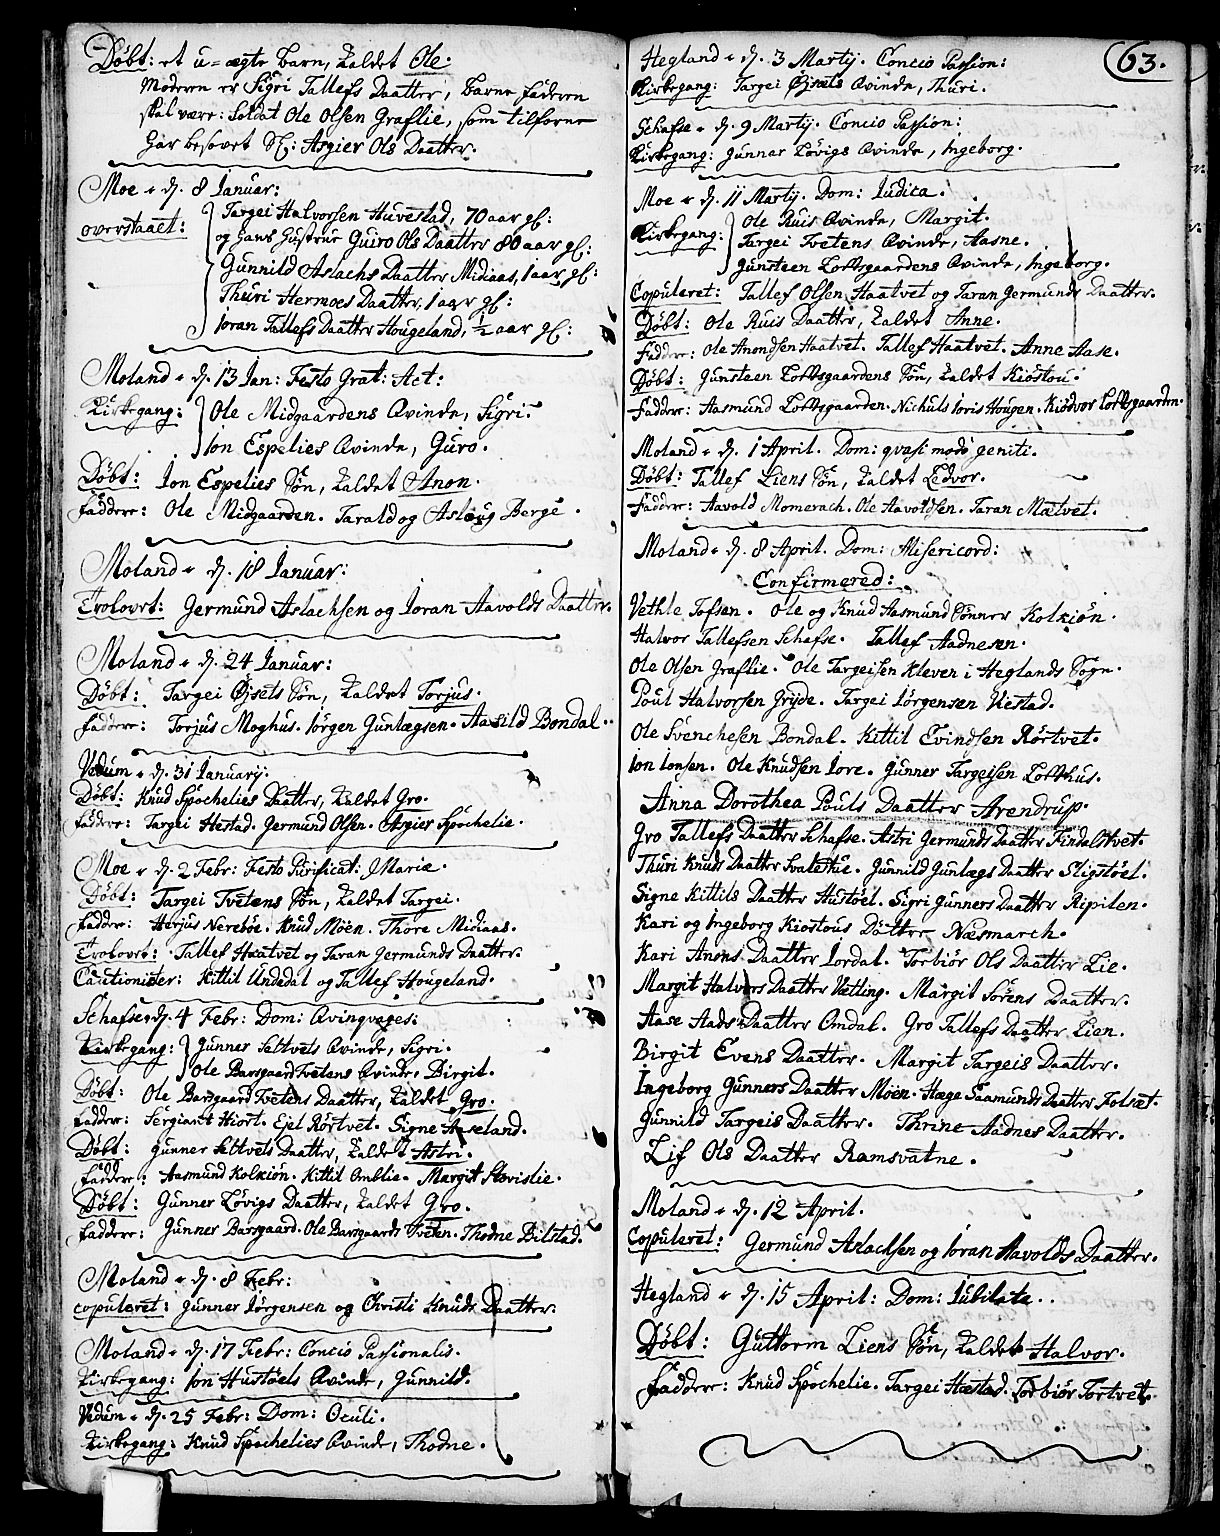 Døbt: et u=ægte barn, kaldet Ole.
Moderen er Sigri Tallefs Daatter, barne faderen
skal være: Soldat Ole Olsen Graflie, som tilforne
har besovet Sl: Asgier Ols Daatter.
Moe d. 8 Januar:
overstaaet: Targei Halvorsen Huvestad, 70 aar gl:
og hans Hustrue Guro Ols Daatter 80 aar gl:
Gunnild Aslachs Daatter Midiaas, 1 aar gl:
Thuri Hermoes Daatter, 1 aar gl:
Joran Tallefs Daatter Hougeland, ½ aar gl:
Moland d. 13 Jan: Festo Grat: Act:
Kirkegang: Ole Midgaardens Qvinde, Sigri.
Jon Espelies Qvinde, Guro.
Døbt: Jon Espelies Søn, kaldet Anon.
faddere: Ole Midgaarden. Tarald og Aslaug Berge.
Moland d. 18 Januar:
Trolovet: Germund Aslachsen og Joran Aavolds Daatter.
Moland d. 24 Januar:
Døbt: Targei Øisels Søn, kaldet Torjus.
faddere: Torjus Moghus. Jørgen Gunlegsen. Aasild Bondal.
Vedum d. 31 Januarij.
Døbt: Knud Spochelies Daatter, kaldet Gro.
faddere: Targei Hestad. Germund Olsen. Asgier Spochelie.
Moe d. 2 Febr: Festo Purificat: Mariæ.
Døbt: Targei Tvetens Søn, kaldet Targei.
faddere: Herjus Nereböe. Knud Möen. Thore Midiaas.
Trolovet: Tallef Haatvet og Taran Germunds Daatter.
Cautionister: Kittil Undedal og Tallef Hougeland.
Schafse d. 4 Febr: Dom: Qvinqvages:
Kirkegang: Gunner Saltvets Qvinde, Sigri.
Ole Barsgaard Tvetens Qvinde, Birgit.
Døbt: Ole Barsgaard Tvetens Daatter, kaldet Gro.
faddere: Sergiant Hiort. Ejel Rörtvet. Signe Aaseland.
Døbt: Gunner Saltvets Daatter, kaldet Astri.
faddere: Aasmund Kolkiön. Kittil Omblie. Margit Stovislie.
Døbt: Gunner Lövigs Daatter, kaldet Gro.
faddere: Gunner Barsgaard. Ole Barsgaards Tveten. Thodne Bilstad.
Moland d. 8 Febr:
copuleret: Gunner Jörgensen og Christi Knuds Daatter.
Moland d. 17 Febr: Concio Passionalis.
Kirkegang: Jon Hustöels Qvinde, Gunnild.
Vedum d. 25 Febr: Dom: Oculi.
Kirkegang: Knud Spochelies Qvinde, Thodne.
63.
Hegland d. 3 Martij. Concio Passion:
Kirkegang: Targei Øisels Qvinde, Thuri.
Schafse d. 9 Martij. Concio Passion:
Kirkegang: Gunnar Lövigs Qvinde, Ingeborg.
Moe d. 11 Martij. Dom: Judica.
Kirkegang: Ole Ruis Qvinde, Margit.
Targei Tvetens Qvinde, Aasne.
Gunsteen Loftsgaardens Qvinde, Ingeborg.
Copuleret: Tallef Olsen Haatvet og Taran Germunds Daatter.
Døbt: Ole Ruis Daatter, kaldet Anne.
faddere: Ole Anondsen Haatvet. Tallef Haatvet. Anne Aase.
Døbt: Gunsteen Loftsgaardens Søn, kaldet Kiöstou.
faddere: Aasmund Loftsgaarden. Nichuls Joris Hougen. Kiödvor Loftsgaarden.
Moland d. 1 April. Dom: qvasi modo geniti.
Døbt: Tallef Liens Søn, kaldet Ledvor.
faddere: Aavold Momerach. Ole Aavoldsen. Taran Mætvet.
Moland d. 8 April. Dom: Misericord:
Confirmered:
Vethle Tofsen. Ole og Knud Aasmund Sønner Kolkiön.
Halvor Tallefsen Schafse. Tallef Aadnesen.
Ole Olsen Graflie. Ole Targeisen Kleven i Heglands Sogn.
Poul Halvorsen Gryde. Targei Jörgensen Vestad.
Ole Svenchesen Bondal. Kittil Evindsen Rörtvet.
Jon Jonsen. Ole Knudsen Jore. Gunner Targeisen Lofthus.
Anna Dorothea Pouls Daatter Arendrup.
Gro Tallefs Daatter Schafse. Astri Germunds Daatter Findalstvet.
Thuri Knuds Daatter Svalestue. Gunnild Gunlegs Daatter Sligstöel.
Signe Kittils Daatter Hustöel. Sigri Gunners Daatter Ripilen.
Kari og Ingeborg Kiostous Döttre Næsmarch.
Kari Anons Daatter Jordal. Torbiör Ols Daatter Lie.
Margit Halvors Daatter Vetting. Margit Sörens Daatter.
Aase Aads Daatter Omdal. Gro Tallefs Daatter Lien.
Birgit Evens Daatter. Margit Targeis Daatter.
Ingeborg Gunners Daatter Moen. Hæge Saamunds Daatter Folset.
Gunnild Targeis Daatter. Thrine Aadnes Daatter.
Lif Ols Daatter Ramsvatne.
Moland d. 12 April.
Copuleret: Germund Aslachsen og Joran Aavolds Daatter.
Hegland d. 15 April: Dom: Jubilate.
Døbt: Guttorm Liens Søn, kaldet Halvor.
faddere: Knud Spochelie. Targei Hæstad. Torbiör Tortvet.